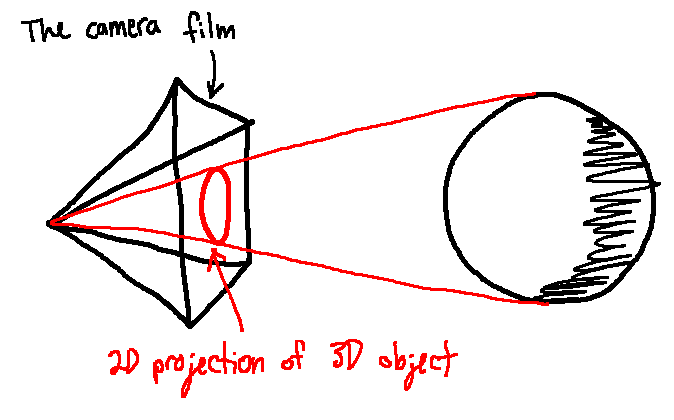 The camera film
2D projection of 3D object